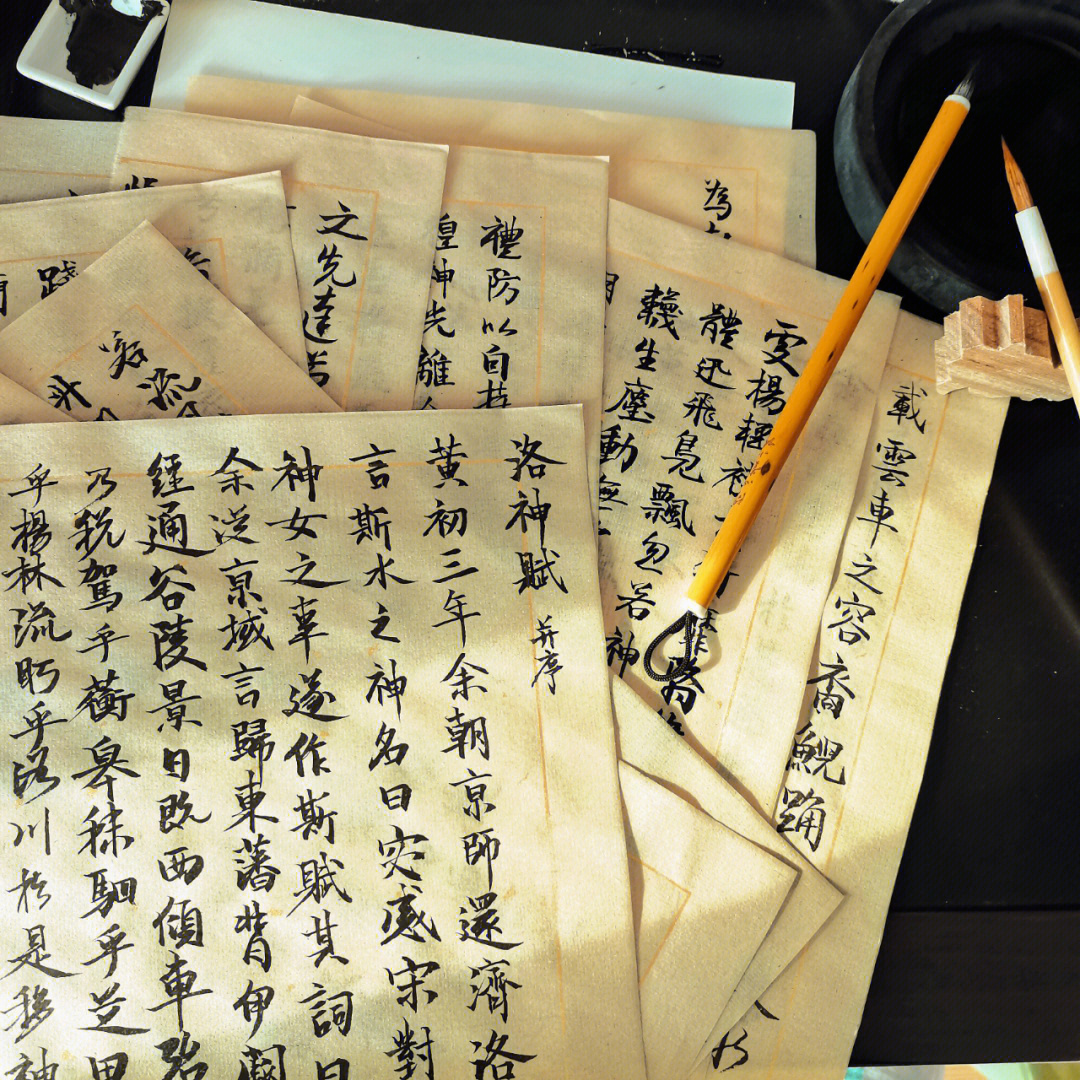 洛神賦 并序
黃初三年余朝京師還濟洛
言斯水之神名曰宓感宋對
神女之事遂作斯賦其詞曰
余從京域言歸東藩背伊闕
經通谷陵景日既西傾車殆
乃稅駕乎蘅皋秣駟乎芝田
乎楊林流眄乎洛川於是移神
載雲車之容裔鯢踊
楊輕袿
體迅飛鳧飄忽若神
韈生塵動無
為
禮防以自持
皇神光離
之先達
流
踐